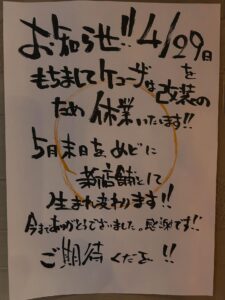 お知らせ!! 4/29日を
もちまして ケューザな改装の
ため 休業いたします!!
5月末日を、めどに
新店舗として
生まれ変わります!!
今までありがとうございました。感謝です!!
ご期待くださ !!